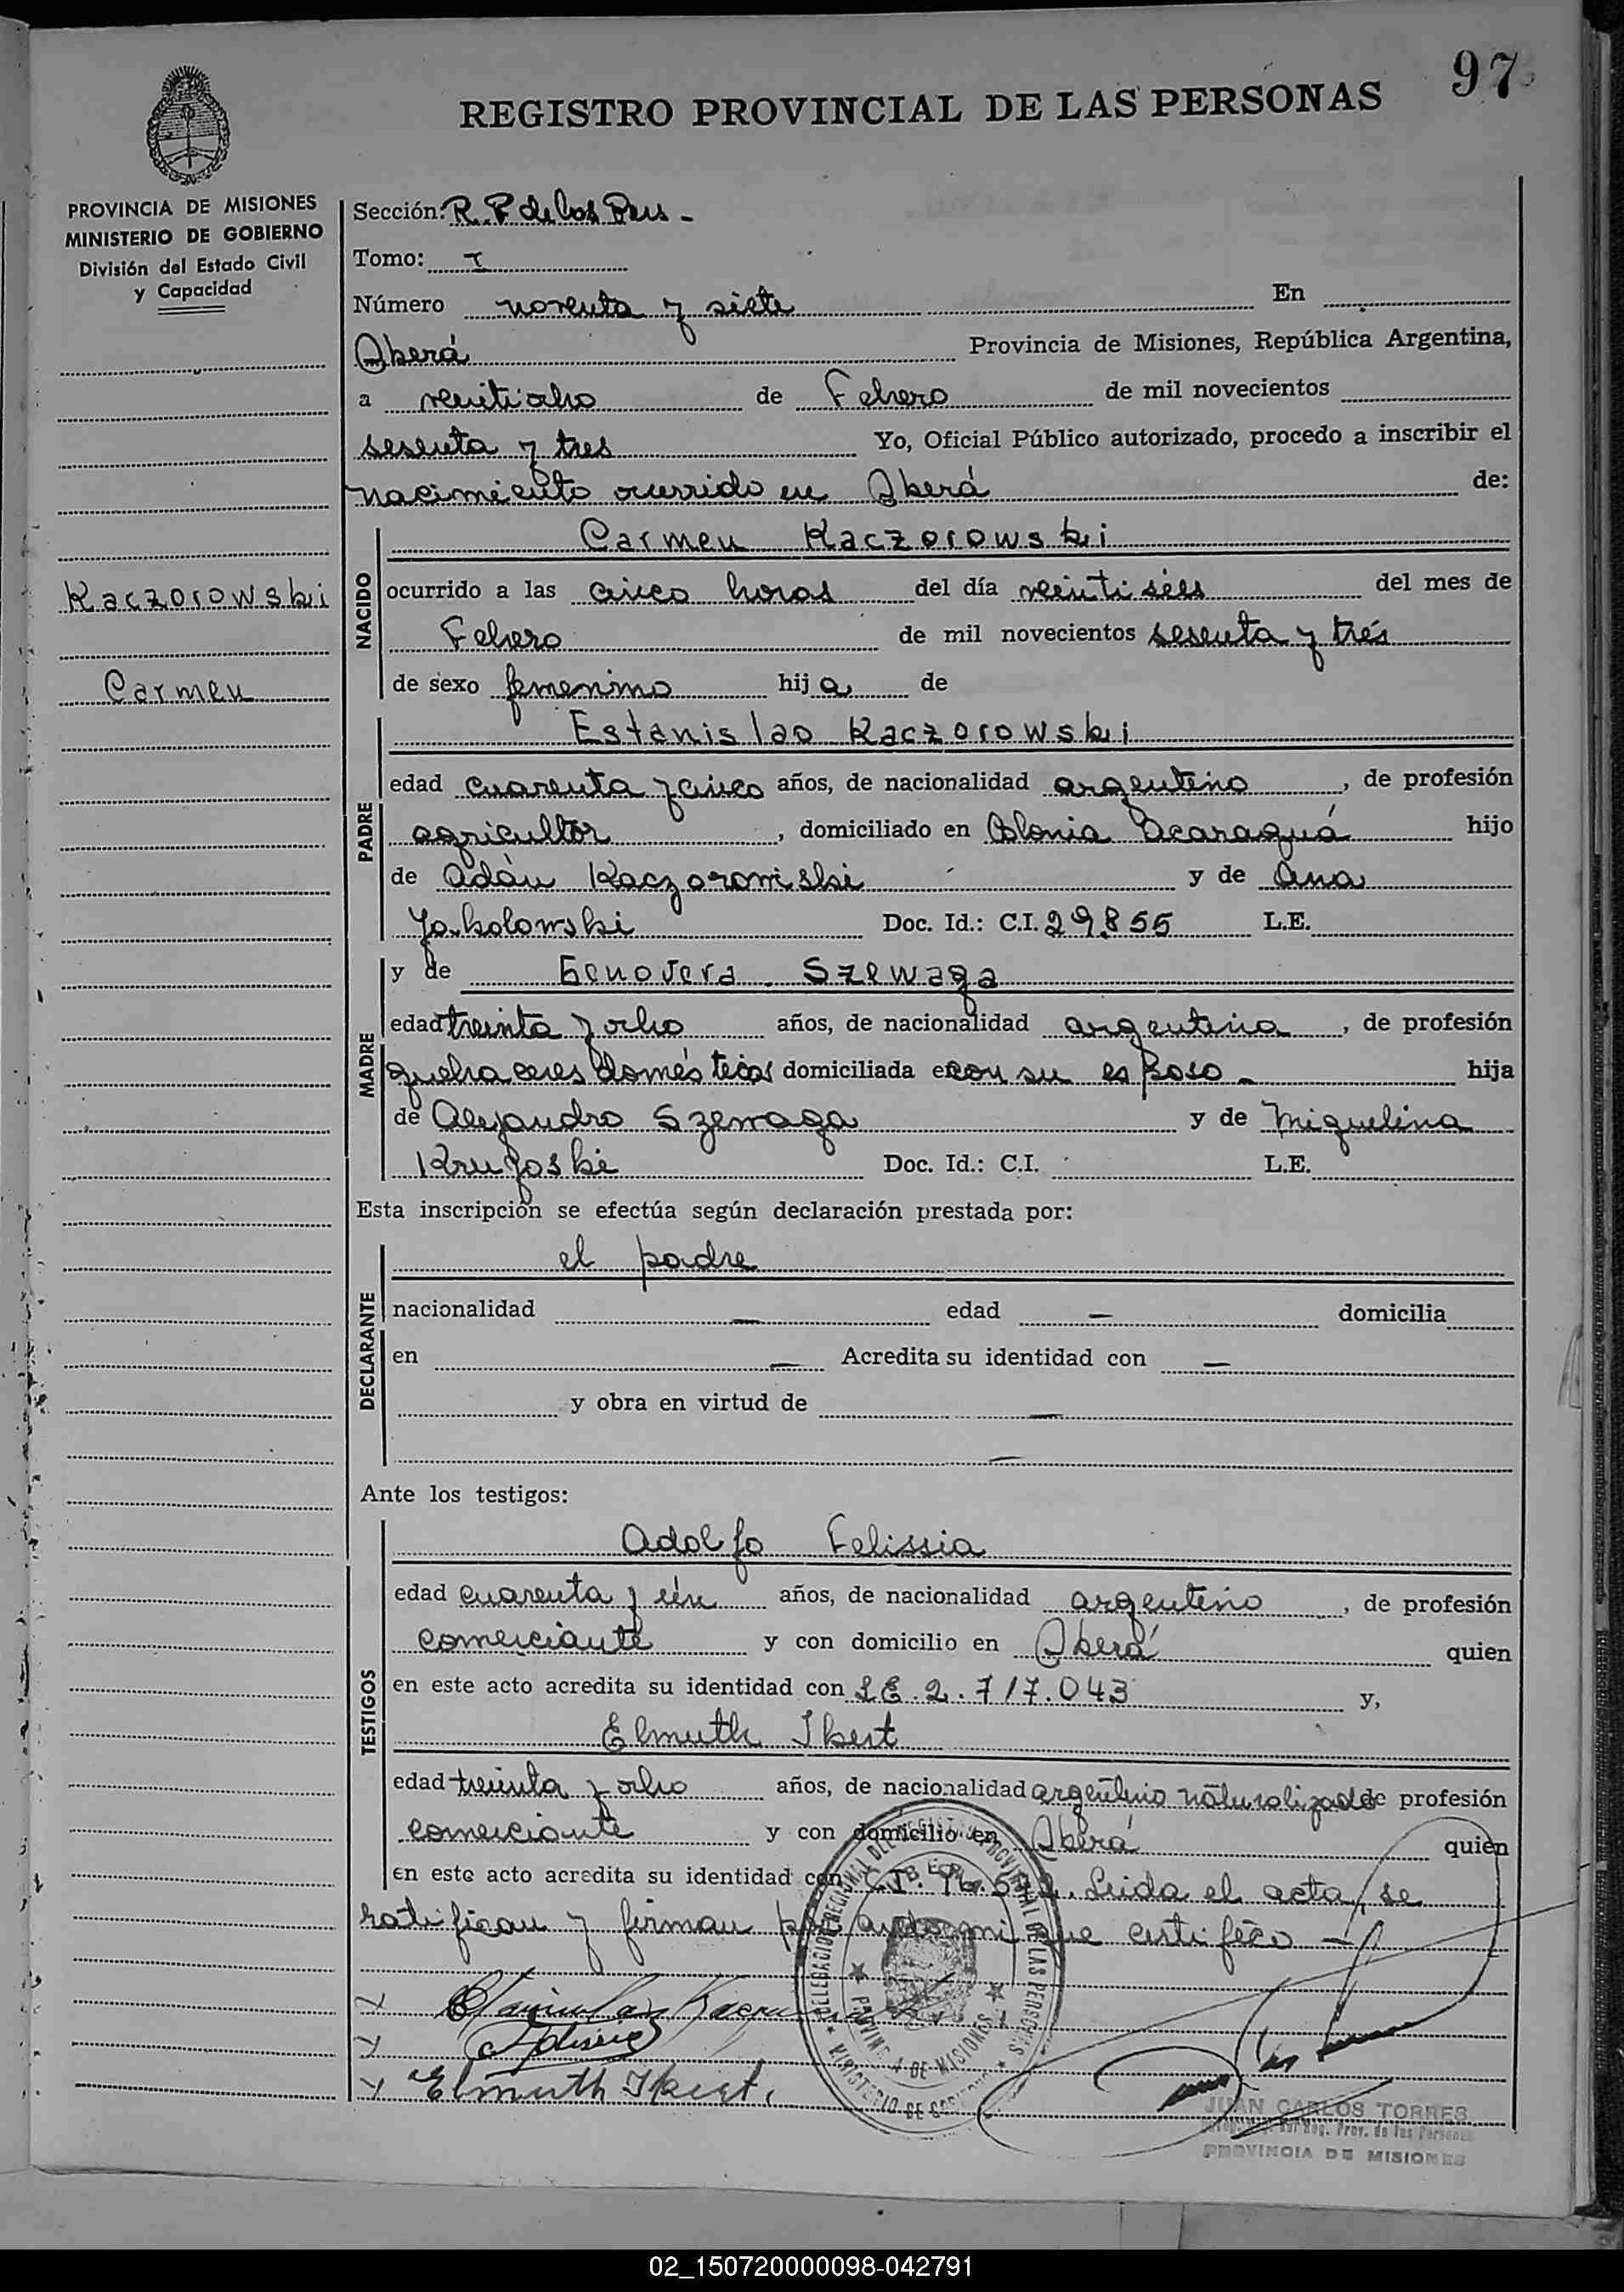 97
REGISTRO PROVINCIAL DE LAS PERSONAS
PROVINCIA DE MISIONES
MINISTERIO DE GOBIERNO
División del Estado Civil
y Capacidad
Kaczorowski
Carmen
Sección: R. P de las Pers -
Tomo: I
Número noventa y siete En
Oberá Provincia de Misiones, República Argentina,
a veintiocho de Febrero de mil novecientos
sesenta y tres Yo, Oficial Público autorizado, procedo a inscribir el
nacimiento ocurrido en Oberá de:
NACIDO
Carmen Kaczorowski
ocurrido a las cinco horas del día veintiséis del mes de
Febrero de mil novecientos sesenta y trés
de sexo femenino hija de
PADRE
Estanislao Kaczorowski
edad cuarenta y cinco años, de nacionalidad argentino, de profesión
agricultor, domiciliado en Colonia Acaraguá hijo
de Adán Kaczorowiski y de Ana
Yakolowski Doc. Id.: C.I. 29.855 L.E.
MADRE
y de Genoveva Szewaga
edad treinta y ocho años, de nacionalidad argentina, de profesión
quehaceres domésticos domiciliada econ su esposo - hija
de Alejandro Szewaga y de Miguelina
Doc. Id.: C.I. L.E.
Esta inscripción se efectúa según declaración prestada por:
DECLARANTE
el padre
nacionalidad — edad — domicilia
en — Acredita su identidad con —
y obra en virtud de —
—
Ante los testigos:
TESTIGOS
Adolfo Felissia
edad cuarenta y ún años, de nacionalidad argentino, de profesión
comerciante y con domicilio en Oberá quien
en este acto acredita su identidad con LE. 2.717.043 y,
Elmuth Ikert
edad treinta y ocho años, de nacionalidad argentino naturalizado de profesión
comerciante y con domicilio en Oberá quien
en este acto acredita su identidad con C.I. Leida el acta, se
ratifican y firman por ante mi que certifico -
Elmuth Ikert.
JUAN CARLOS TORRES
PROVINCIA DE MISIONES
02_150720000098-042791